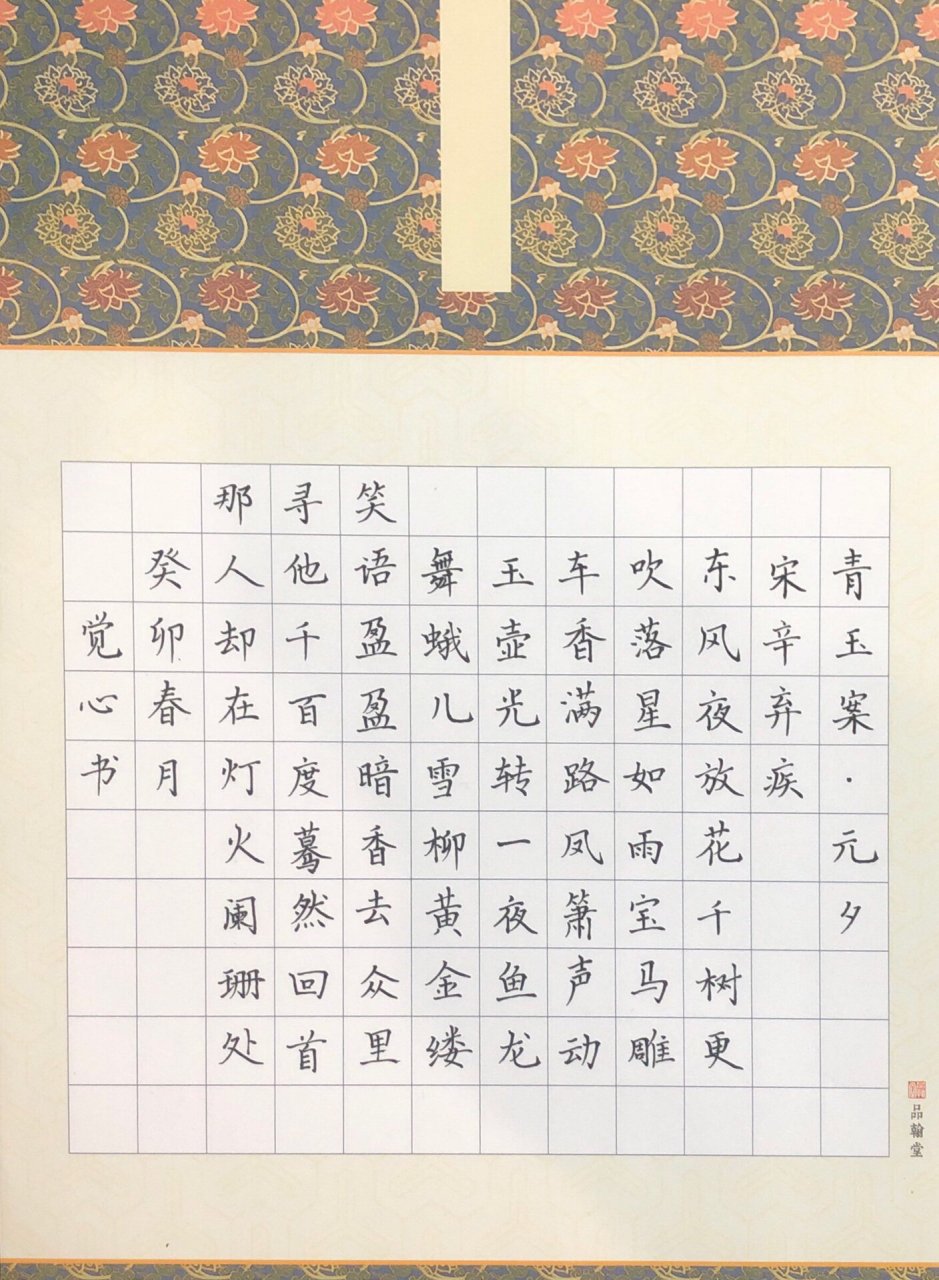 青玉案·元夕
宋辛弃疾
东风夜放花千树更
吹落星如雨宝马雕
车香满路凤箫声动
玉壶光转一夜鱼龙
舞蛾儿雪柳黄金缕
笑语盈盈暗香去众里
寻他千百度蓦然回首
那人却在灯火阑珊处
癸卯春月
觉心书
品翰堂